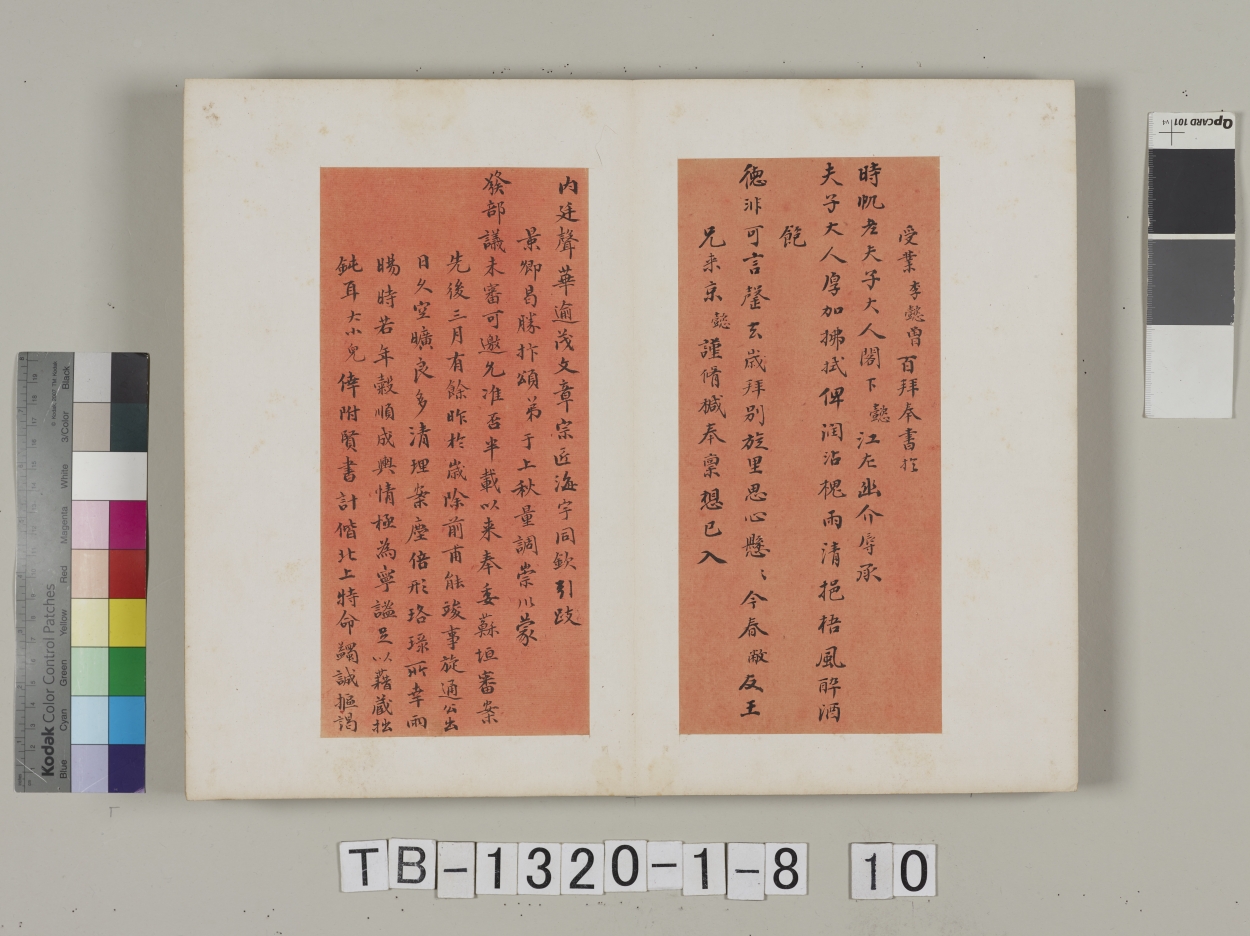 受業李懿曾百拜奉書於
時帆老夫子大人閣下懿江左豎介辱承
夫子大人厚加拂拭俾潤沾槐雨清挹梧風醉酒
飽
德非可言罄去歲拜別旋里思心懸〻今春敝友王
兄來京懿謹脩椷奉稟想已入
內廷聲華逾茂文章宗匠海宇同欽引跂
景卿曷勝抃頌弟于上秋量調崇川蒙
發部議未審可邀允准否半載以來奉委蘇垣審案
先後三月有餘昨於歲除前甫能竣事旋通公出
日久空曠良多清理案塵倍形珞琭所幸雨
暘時若年穀順成輿情極為寧謐足以藉藏拙
鈍耳大小兒倖附賢書計偕北上特命蠲誠摳謁
TB-1320-1-8 10
QPCARD 101 v4
Kodak Color Control Patches
© Kodak, 2007 TM: Kodak
Blue Cyan Green Yellow Red Magenta White 3/Color Black